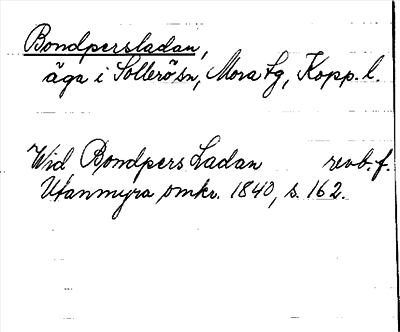 Bondpersladan,
äga i Sollerösn, Mora tg, Kopp. l.
Wid Bondpers Ladan revb. f.
Utanmyra omkr. 1840, s. 162.